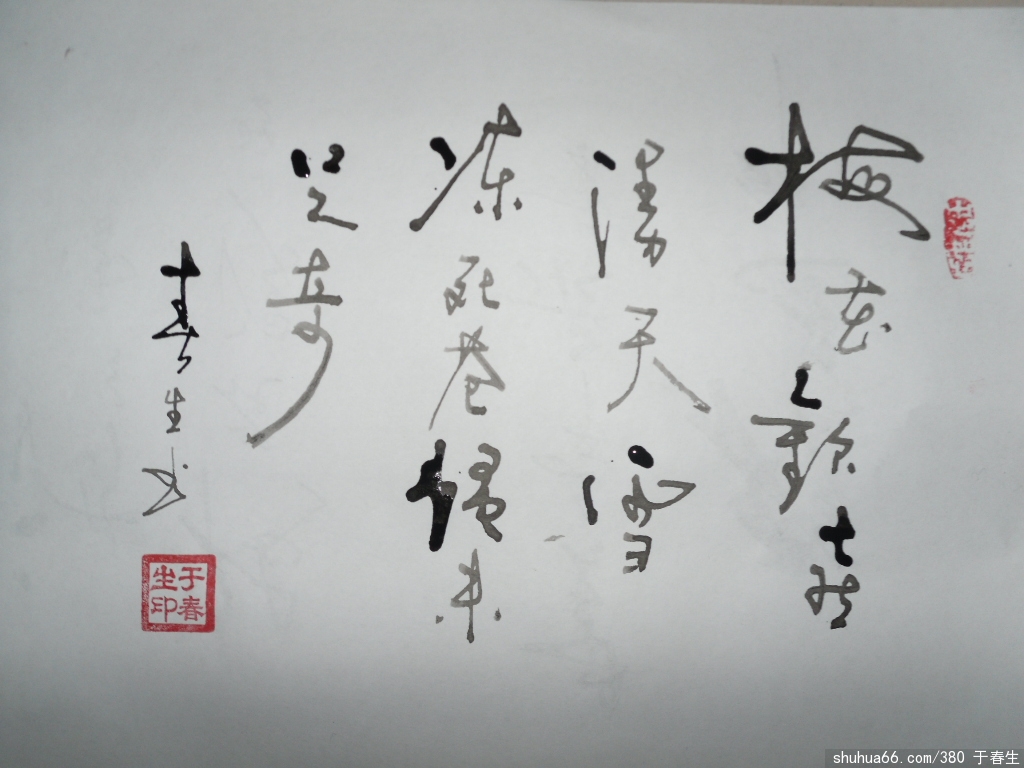 梅花歡喜
漫天雪
凍死苍蠅未
足奇
春生书
于春生印
shuhua66.com/380 于春生